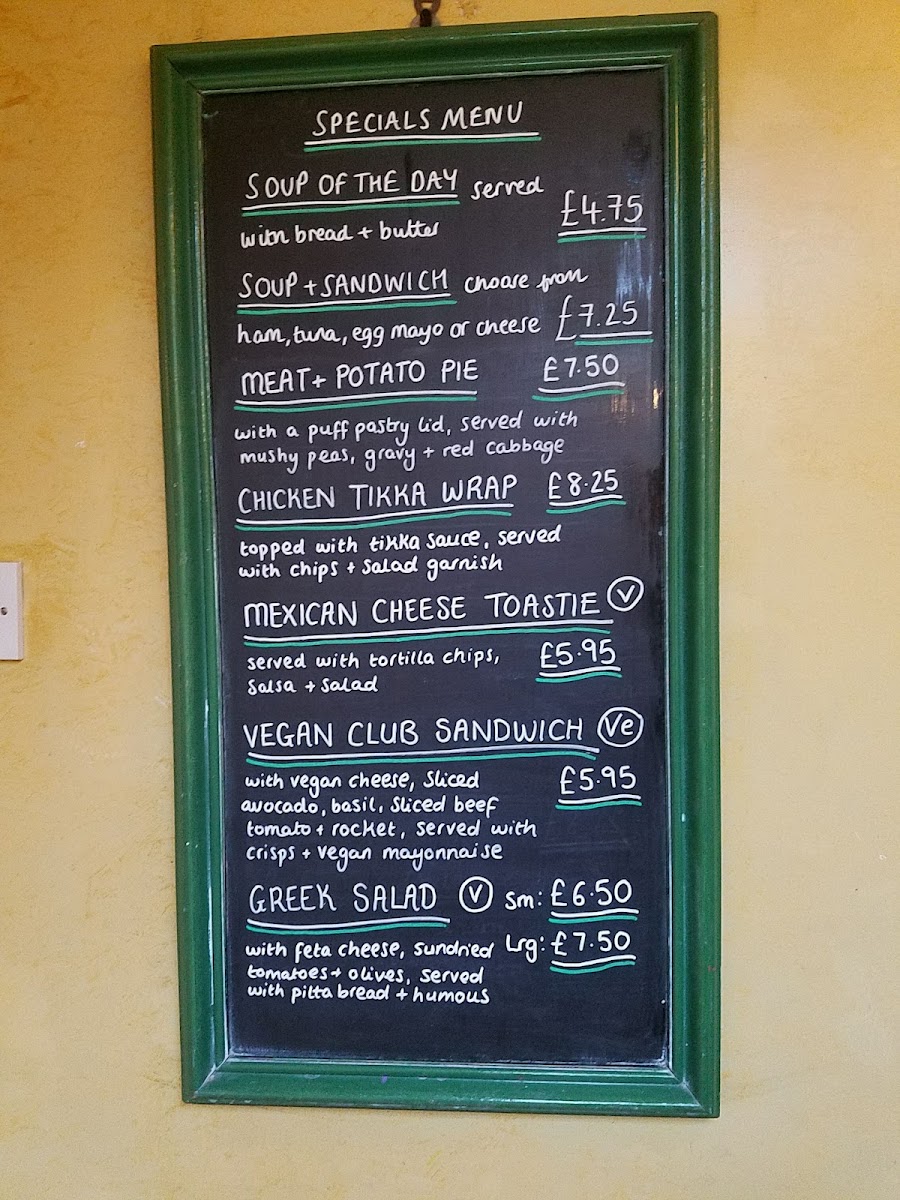 SPECIALS MENU
SOUP OF THE DAY served
with bread + butter £4.75
SOUP + SANDWICH choose from
ham, tuna, egg mayo or cheese £7.25
MEAT + POTATO PIE £7.50
with a puff pastry lid, served with
mushy peas, gravy + red cabbage
CHICKEN TIKKA WRAP £8.25
topped with tikka sauce, served
with chips + salad garnish
MEXICAN CHEESE TOASTIE V
served with tortilla chips, £5.95
salsa + salad
VEGAN CLUB SANDWICH Ve
with vegan cheese, sliced £5.95
avocado, basil, sliced beef
tomato + rocket, served with
crisps + vegan mayonnaise
GREEK SALAD V Sm: £6.50
with feta cheese, sundried Lrg: £7.50
tomatoes + olives, served
with pitta bread + humous